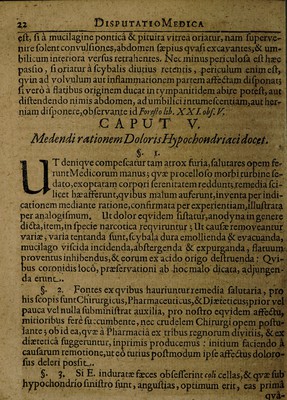 22 DISPUTATIO MEDICA
est, si à mucilagine pontica & pituita vitrea oriatur, nam superve-
nire solent convulsiones, abdomen sæpius qvasi excavantes, & um-
bilicum interiora versus retrahentes. Nec minus periculosa est hæc
passio, si oriatur à scybalis diutius retentis, periculum enim est,
qvin ad volvulum aut inflammationem partem affectam disponat;
si verò à flatibus originem ducat in tympanitidem abire potest, aut
distendendo nimis abdomen, ad umbilici intumescentiam, aut her-
niam disponere, observante id Foresto lib. XXI. obs. V.
CAPUT V.
Medendi rationem Doloris Hypochondriaci docet.
§. 1.
UT deniqve compescatur tam atrox furia, salutares opem fe-
runt Medicorum manus; qvæ procelloso morbi turbine se-
dato, exoptatam corpori serenitatem reddunt; remedia sci-
licet hæ afferunt, qvibus malum auferunt, inventa per indi-
cationem mediante ratione, confirmata per experientiam, illustrata
per analogismum. Ut dolor eqvidem sistatur, anodyna in genere
dicta, item, in specie narcotica reqviruntur; Ut causæ removeantur
variæ, varia tentanda sunt, scybala dura emollienda & evacuanda,
mucilago viscida incidenda, abstergenda & expurganda, flatuum
proventus inhibendus, & eorum ex acido origo destruenda: Qvi-
bus coronidis locô, præservationi ab hoc malo dicata, adjungen-
da erunt...
§. 2. Fontes ex qvibus hauriuntur remedia salutaria, pro
his scopis sunt Chirurgicus, Pharmaceuticus, & Diæteticus; prior vel
pauca vel nulla subministrat auxilia, pro nostro eqvidem affectu,
mitioribus ferè succumbente, nec crudelem Chirurgi opem postu-
lante; obid ea, qvæ à Pharmacia ex tribus regnorum divitiis, & ex
diætetica suggeruntur, inprimis producemus: initium faciendo à
causarum remotione, ut eò tutius postmodum ipse affectus doloro-
sus deleri possit...
§. 3. Si E. induratæ fæces obsesserint coli cellas, & qvæ sub
hypochondrio sinistro sunt, angustias, optimum erit, eas primâ
qvâ-